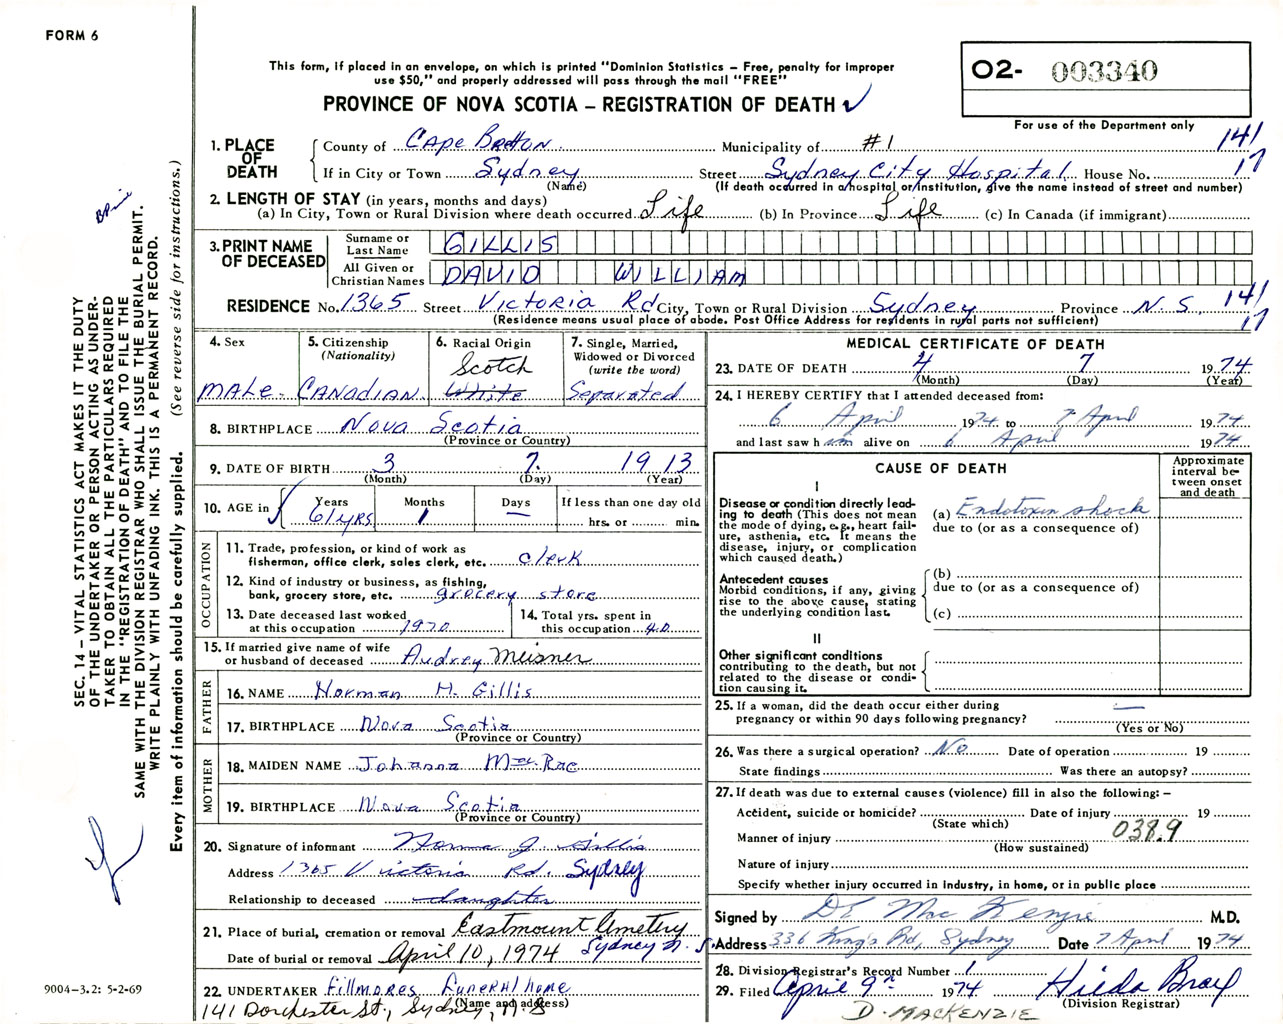 FORM 6
This form, if placed in an envelope, on which is printed "Dominion Statistics – Free, penalty for improper
use $50," and properly addressed will pass through the mail "FREE"
PROVINCE OF NOVA SCOTIA – REGISTRATION OF DEATH
02- 003340
For use of the Department only
141
17
1. PLACE OF DEATH
County of Cape Breton Municipality of #1
If in City or Town Sydney Street Sydney City Hospital House No.
(Name) (If death occurred in a hospital or institution, give the name instead of street and number)
2. LENGTH OF STAY (in years, months and days)
(a) In City, Town or Rural Division where death occurred Life (b) In Province Life (c) In Canada (if immigrant)
3. PRINT NAME OF DECEASED
Surname or Last Name GILLIS
All Given or Christian Names DAVID WILLIAM
RESIDENCE No. 1365 Street Victoria Rd City, Town or Rural Division Sydney Province N.S. 141
17
(Residence means usual place of abode. Post Office Address for residents in rural parts not sufficient)
4. Sex MALE
5. Citizenship (Nationality) CANADIAN
6. Racial Origin Scotch White
7. Single, Married, Widowed or Divorced (write the word) Separated
8. BIRTHPLACE Nova Scotia
(Province or Country)
9. DATE OF BIRTH 3 7 1913
(Month) (Day) (Year)
10. AGE in Years 61 yrs Months 1 Days — If less than one day old
hrs. or min.
OCCUPATION
11. Trade, profession, or kind of work as
fisherman, office clerk, sales clerk, etc. clerk
12. Kind of industry or business, as fishing,
bank, grocery store, etc. grocery store
13. Date deceased last worked
at this occupation 1970
14. Total yrs. spent in
this occupation 40
15. If married give name of wife
or husband of deceased Audrey Meisner
FATHER
16. NAME Norman H. Gillis
17. BIRTHPLACE Nova Scotia
(Province or Country)
MOTHER
18. MAIDEN NAME Johanna MacRae
19. BIRTHPLACE Nova Scotia
(Province or Country)
20. Signature of informant Norma J. Gillis
Address 1365 Victoria Rd. Sydney
Relationship to deceased daughter
21. Place of burial, cremation or removal Eastmount Cemetery
Date of burial or removal April 10, 1974 Sydney N.S.
22. UNDERTAKER Fillmores Funeral home
(Name and address)
141 Dorchester St., Sydney, N.S
MEDICAL CERTIFICATE OF DEATH
23. DATE OF DEATH 4 7 1974
(Month) (Day) (Year)
24. I HEREBY CERTIFY that I attended deceased from:
6 April 1974 to 7 April 1974
and last saw him alive on 6 April 1974
CAUSE OF DEATH
Approximate interval between onset and death
I
Disease or condition directly lead-
ing to death (This does not mean
the mode of dying, e.g., heart fail-
ure, asthenia, etc. It means the
disease, injury, or complication
which caused death.)
(a) Endotoxin shock
due to (or as a consequence of)
Antecedent causes
Morbid conditions, if any, giving
rise to the above cause, stating
the underlying condition last.
(b)
due to (or as a consequence of)
(c)
II
Other significant conditions
contributing to the death, but not
related to the disease or condi-
tion causing it.
25. If a woman, did the death occur either during
pregnancy or within 90 days following pregnancy? —
(Yes or No)
26. Was there a surgical operation? No Date of operation 19
State findings Was there an autopsy?
27. If death was due to external causes (violence) fill in also the following: –
Accident, suicide or homicide? Date of injury 19
(State which)
038.9
Manner of injury
(How sustained)
Nature of injury
Specify whether injury occurred in industry, in home, or in public place
Signed by DE MacKenzie M.D.
Address 336 King's Rd, Sydney Date 7 April 1974
28. Division Registrar's Record Number 1
29. Filed April 9th 1974 Hilda Bray
(Division Registrar)
D. MACKENZIE
SEC. 14 – VITAL STATISTICS ACT MAKES IT THE DUTY
OF THE UNDERTAKER OR PERSON ACTING AS UNDER-
TAKER TO OBTAIN ALL THE PARTICULARS REQUIRED
IN THE "REGISTRATION OF DEATH" AND TO FILE THE
SAME WITH THE DIVISION REGISTRAR WHO SHALL ISSUE THE BURIAL PERMIT.
WRITE PLAINLY WITH UNFADING INK. THIS IS A PERMANENT RECORD.
Every item of information should be carefully supplied. (See reverse side for instructions.)
9004-3.2: 5-2-69